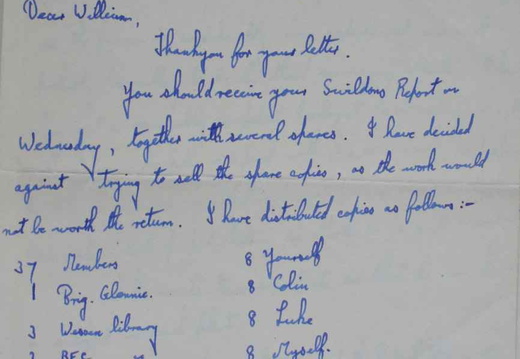 Dear William,
Thankyou for your letter.
You should receive your Swildons Report on
Wednesday, together with several spares. I have decided
against trying to sell the spare copies, as the work would
not be worth the return. I have distributed copies as follows :-
37 Members 8 Yourself
1 Brig. Glennie. 8 Colin
3 Wessex library 8 Luke
BEC 8 Myself.